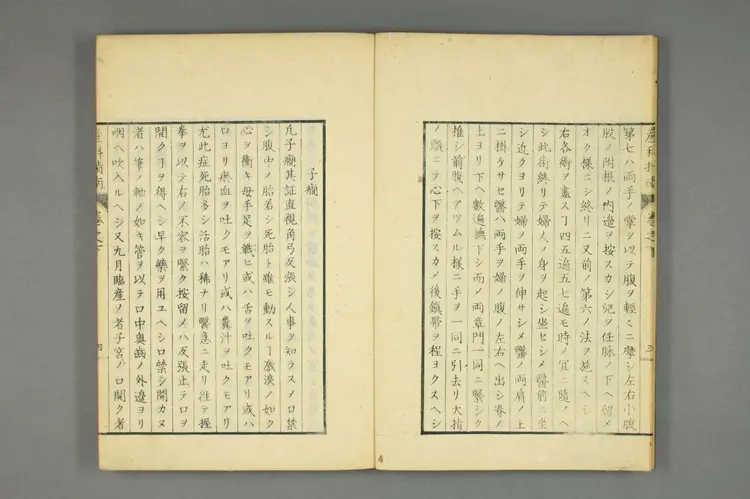 第七ハ両手ノ掌ヲ以テ腹ヲ軽ミニ摩シ左右小腹
股ノ附根ノ内邉ヲ按スカシ児ヲ任脉ノ下ヘ留メ
オク様ニシ終リニ又前ノ第六ノ法ヲ施スヘシ
右各術ヲ盡スヿ四五遍五七遍モ時ノ宜ニ随フヘ
シ此術終リテ婦人ノ身ヲ起シ坐セシメ醫前ニ坐
シ近クヨリテ婦ノ両手ヲ伸サシメ醫ノ両肩ノ上
ニ掛ケサセ醫ハ両手ヲ婦ノ腹ノ左右ヘ出シ脊ノ
上ヨリ下ヘ數遍撫下シ而メ両章門一同ニ緊シク
推シ前腹ヘアツムル様ニ手ヲ一同ニ引去リ大指
ノ頭ニテ心下ヲ按スカメ後鎮帯ヲ程ヨクスヘシ
子癇
凡子癇其証直視角弓反張シ人事ヲ知ラスメ口禁
シ腹中ノ胎若シ死胎ト雖モ動スルヿ激浪ノ如ク
心ヲ衝キ母手足ヲ戦ヒ或ハ舌ヲ吐クモアリ或ハ
口ヨリ瘀血ヲ吐クモアリ或ハ糞汁ヲ吐クモアリ
尤此症死胎多シ活胎ハ稀ナリ醫急ニ走リ徃テ握
拳ヲ以テ右ノ不容ヲ緊ク按留メハ反張止テ口ヲ
開クヿヲ得ヘシ早ク藥ヲ用ユヘシ口禁シ開カヌ
者ハ筆ノ軸ノ如キ管ヲ以テ口中奥齒ノ外邉ヨリ
咽ヘ吹入ルヘシ又九月臨産ノ者子宮ノ口開ク者
産科指南
巻之下
四
4